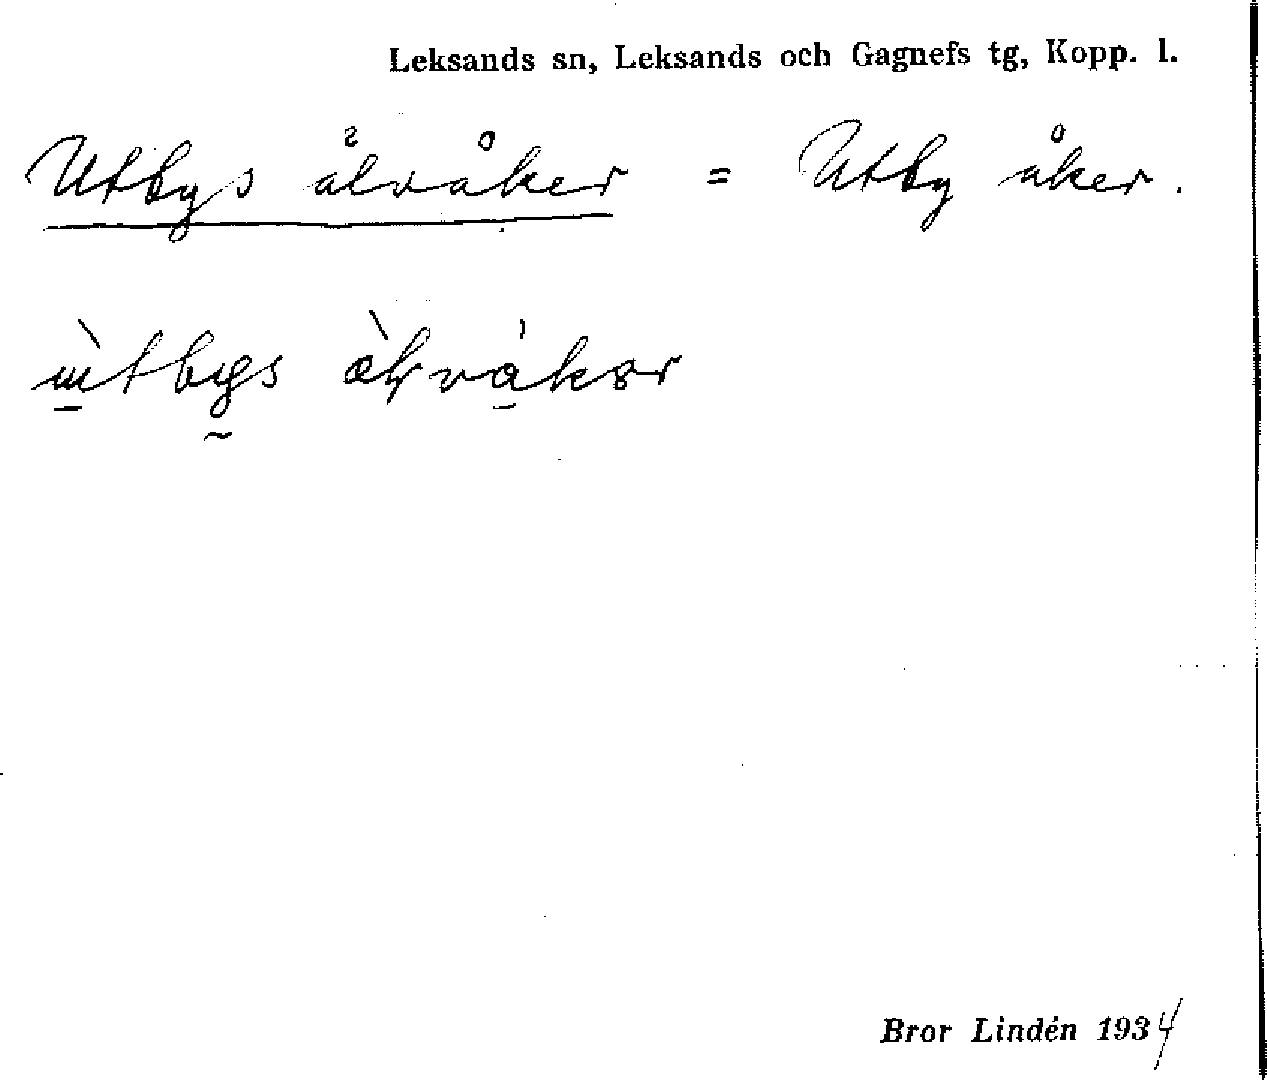 Leksands sn, Leksands och Gagnefs tg, Kopp. l.
Utbys ålvåker = Utby åker.
Bror Lindén 1934